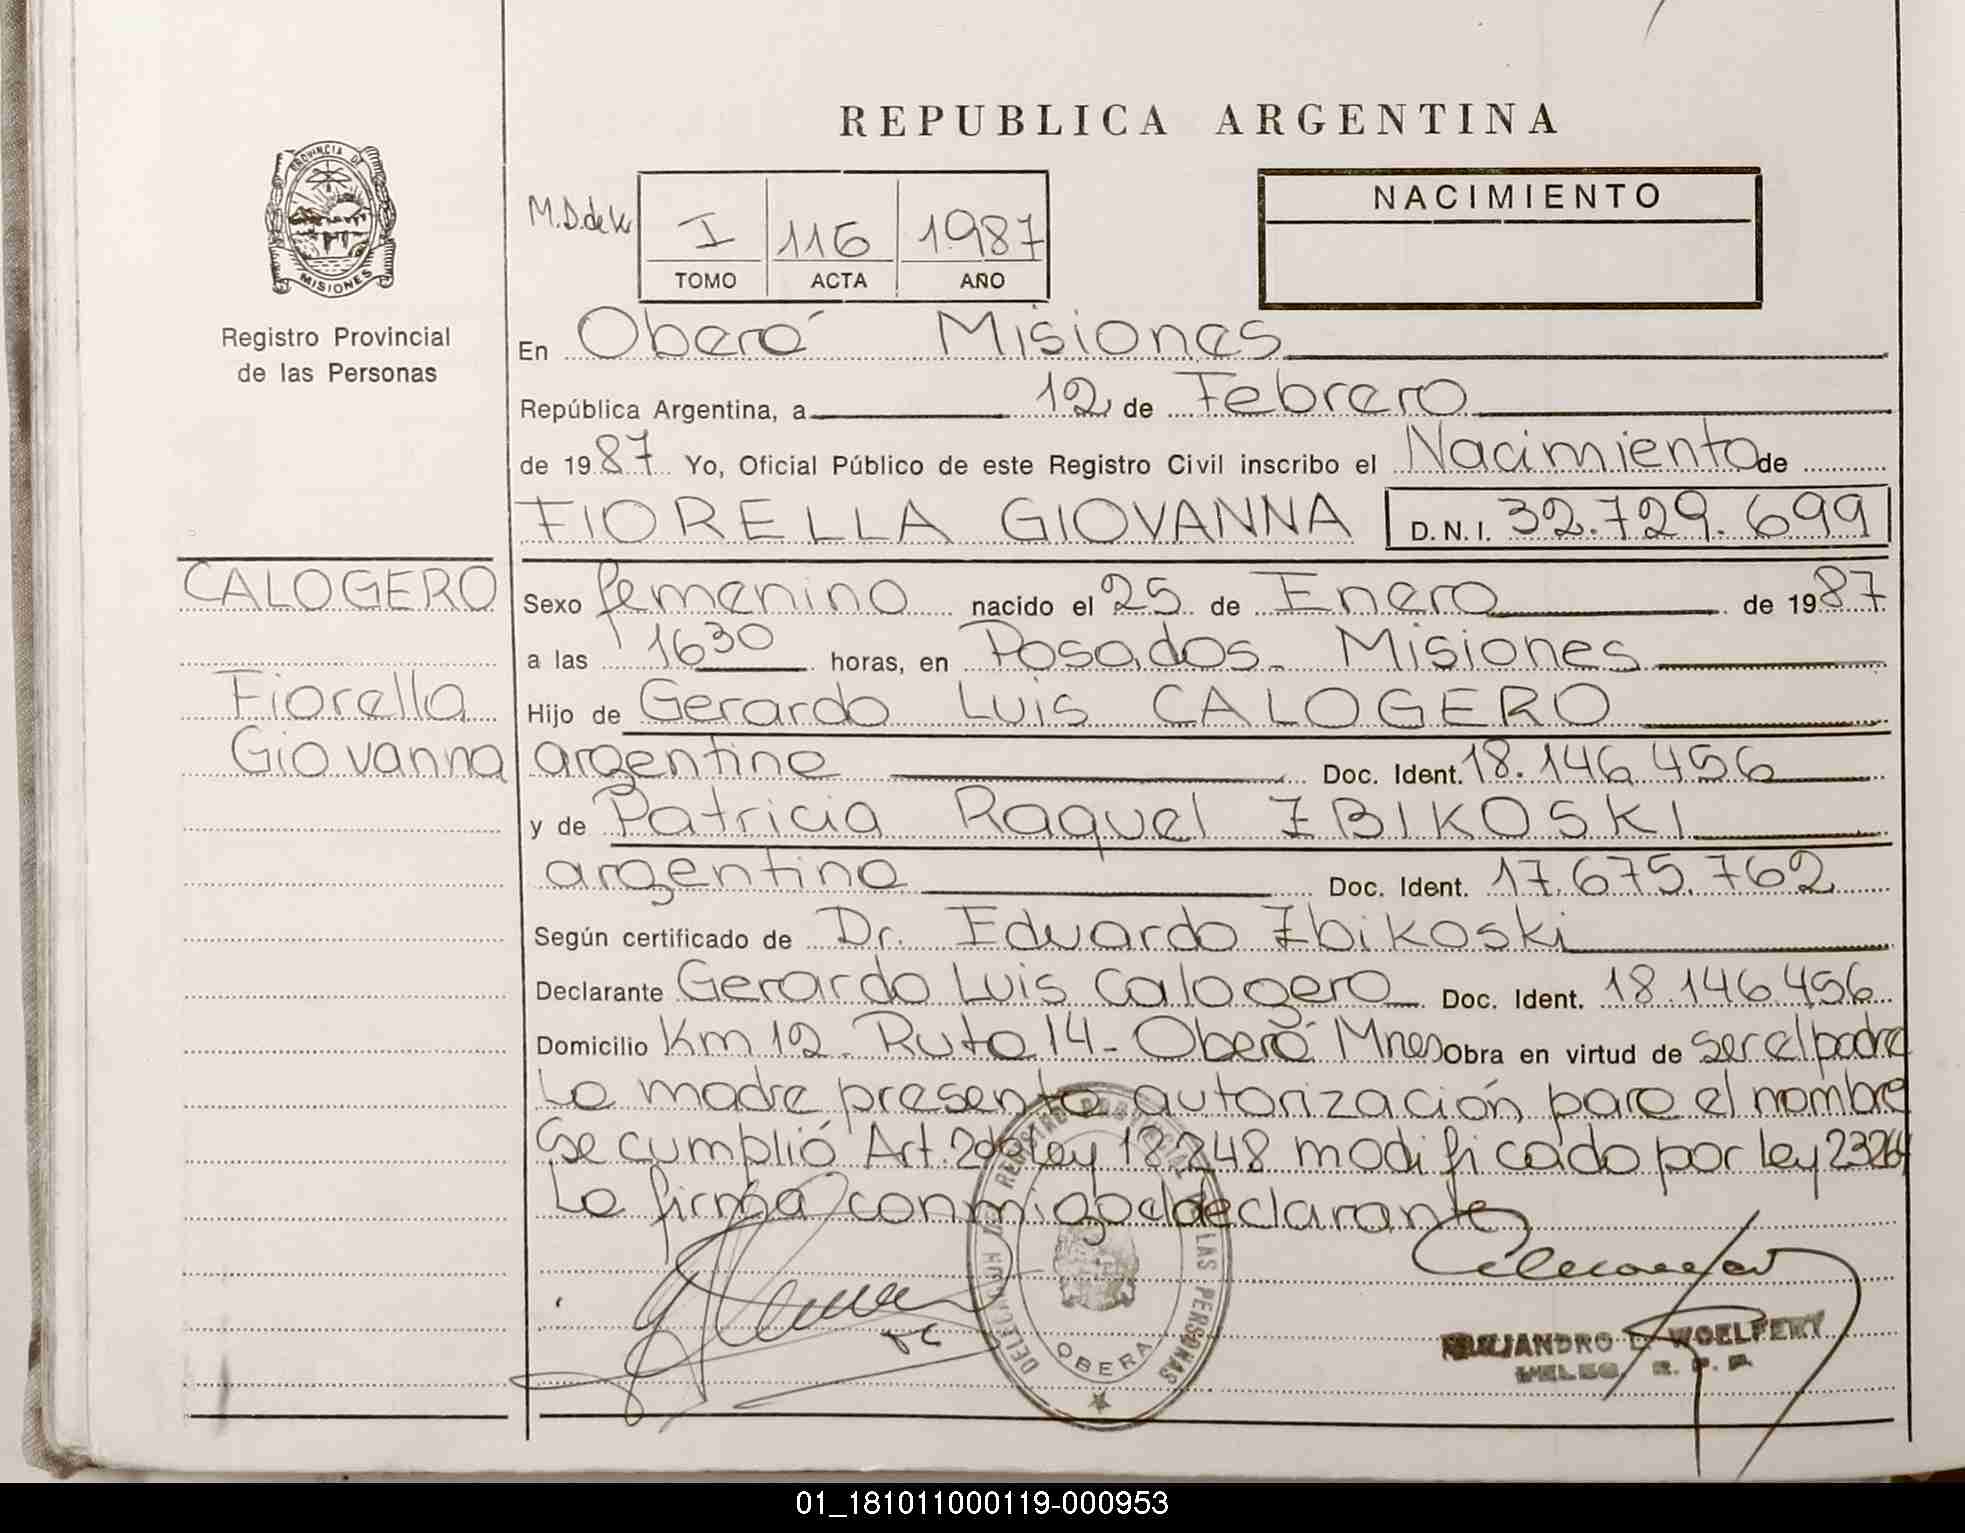 REPUBLICA ARGENTINA
PROVINCIA DE
MISIONES
Registro Provincial
de las Personas
M.S.de
I 116 1987
TOMO ACTA AÑO
NACIMIENTO
En Oberá Misiones
República Argentina, a 12 de Febrero
de 1987 Yo, Oficial Público de este Registro Civil inscribo el Nacimiento de
FIORELLA GIOVANNA D.N.I. 32.729.699
CALOGERO
Fiorella
Giovanna
Sexo femenino nacido el 25 de Enero de 1987
a las 1630 horas, en Posadas Misiones
Hijo de Gerardo Luis CALOGERO
argentino Doc. Ident. 18.146.456
y de Patricia Raquel ZBIKOSKI
argentina Doc. Ident. 17.675.762
Según certificado de Dr. Eduardo Zbikoski
Declarante Gerardo Luis Calogero Doc. Ident. 18.146.456
Domicilio Km 12 Ruta 14 - Oberá Mnes Obra en virtud de ser el padre
La madre presenta autorización para el nombre
Se cumplió Art. 2 de ley 18248 modificado por ley 23264
La firma conmigo el declarante
DELEGACION DEL REGISTRO PROVINCIAL DE LAS PERSONAS
OBERA
WOELFERT
01_181011000119-000953